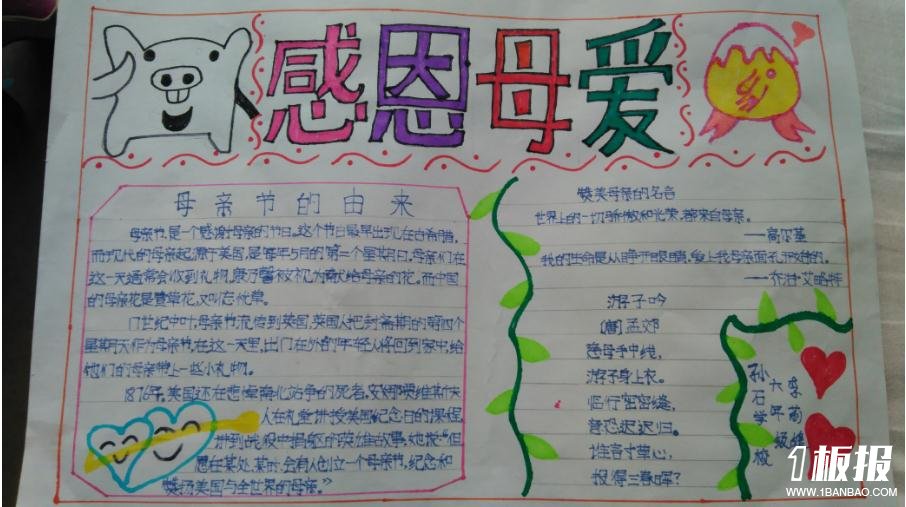 感恩母爱
母亲节的由来
母亲节,是一个感谢母亲的节日。这个节日最早出现在古希腊,
而现代的母亲起源于美国,是每年5月的第二个星期日,母亲们在
这一天通常会收到礼物,康乃馨被视为献给母亲的花。而中国
的母亲花是萱草花,又叫忘忧草。
17世纪中叶,母亲节流传到英国,英国人把封斋期的第四个
星期天作为母亲节,在这一天里,出门在外的年轻人将回到家中,给
他们的母亲带上一些小礼物。
1876年,美国还在悲悼南北战争的死者,安娜 维斯夫
人在礼堂讲授美国纪念日的课程,
讲到战役中捐躯的英雄故事,她说:“但
愿在某处,某时,会有人创立一个母亲节,纪念和
赞扬美国与全世界的母亲。”
赞美母亲的名言
世界上的一切 和光荣,都来自母亲。
——高尔基
我的生命是从睁开眼睛,爱上我母亲面孔开始的。
——乔治·艾略特
游子吟
[唐]孟郊
慈母手中线,
游子身上衣。
临行密密缝,
意恐迟迟归。
谁言寸草心,
报得三春晖?
孙石学校
六年级
李
1板报
WWW.1BANBAO.COM